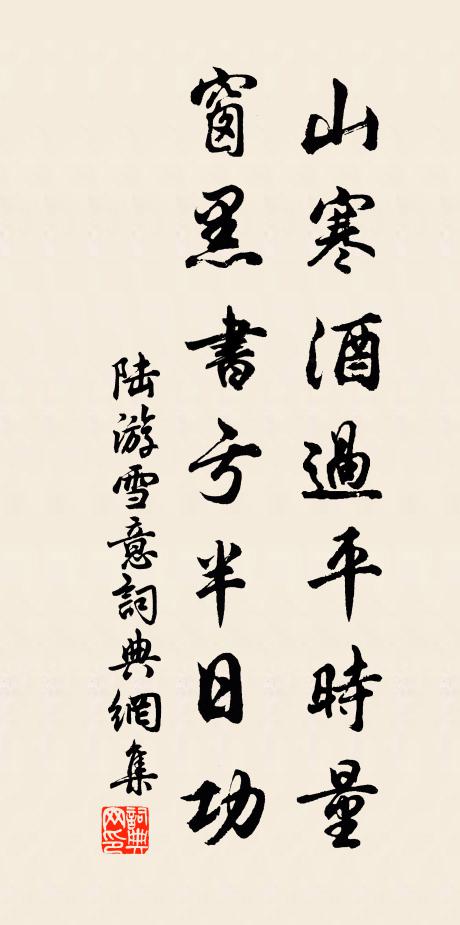 山寒酒過平時量
窗黑書亏半日功
陆游雪意詞典網集
詞典網印